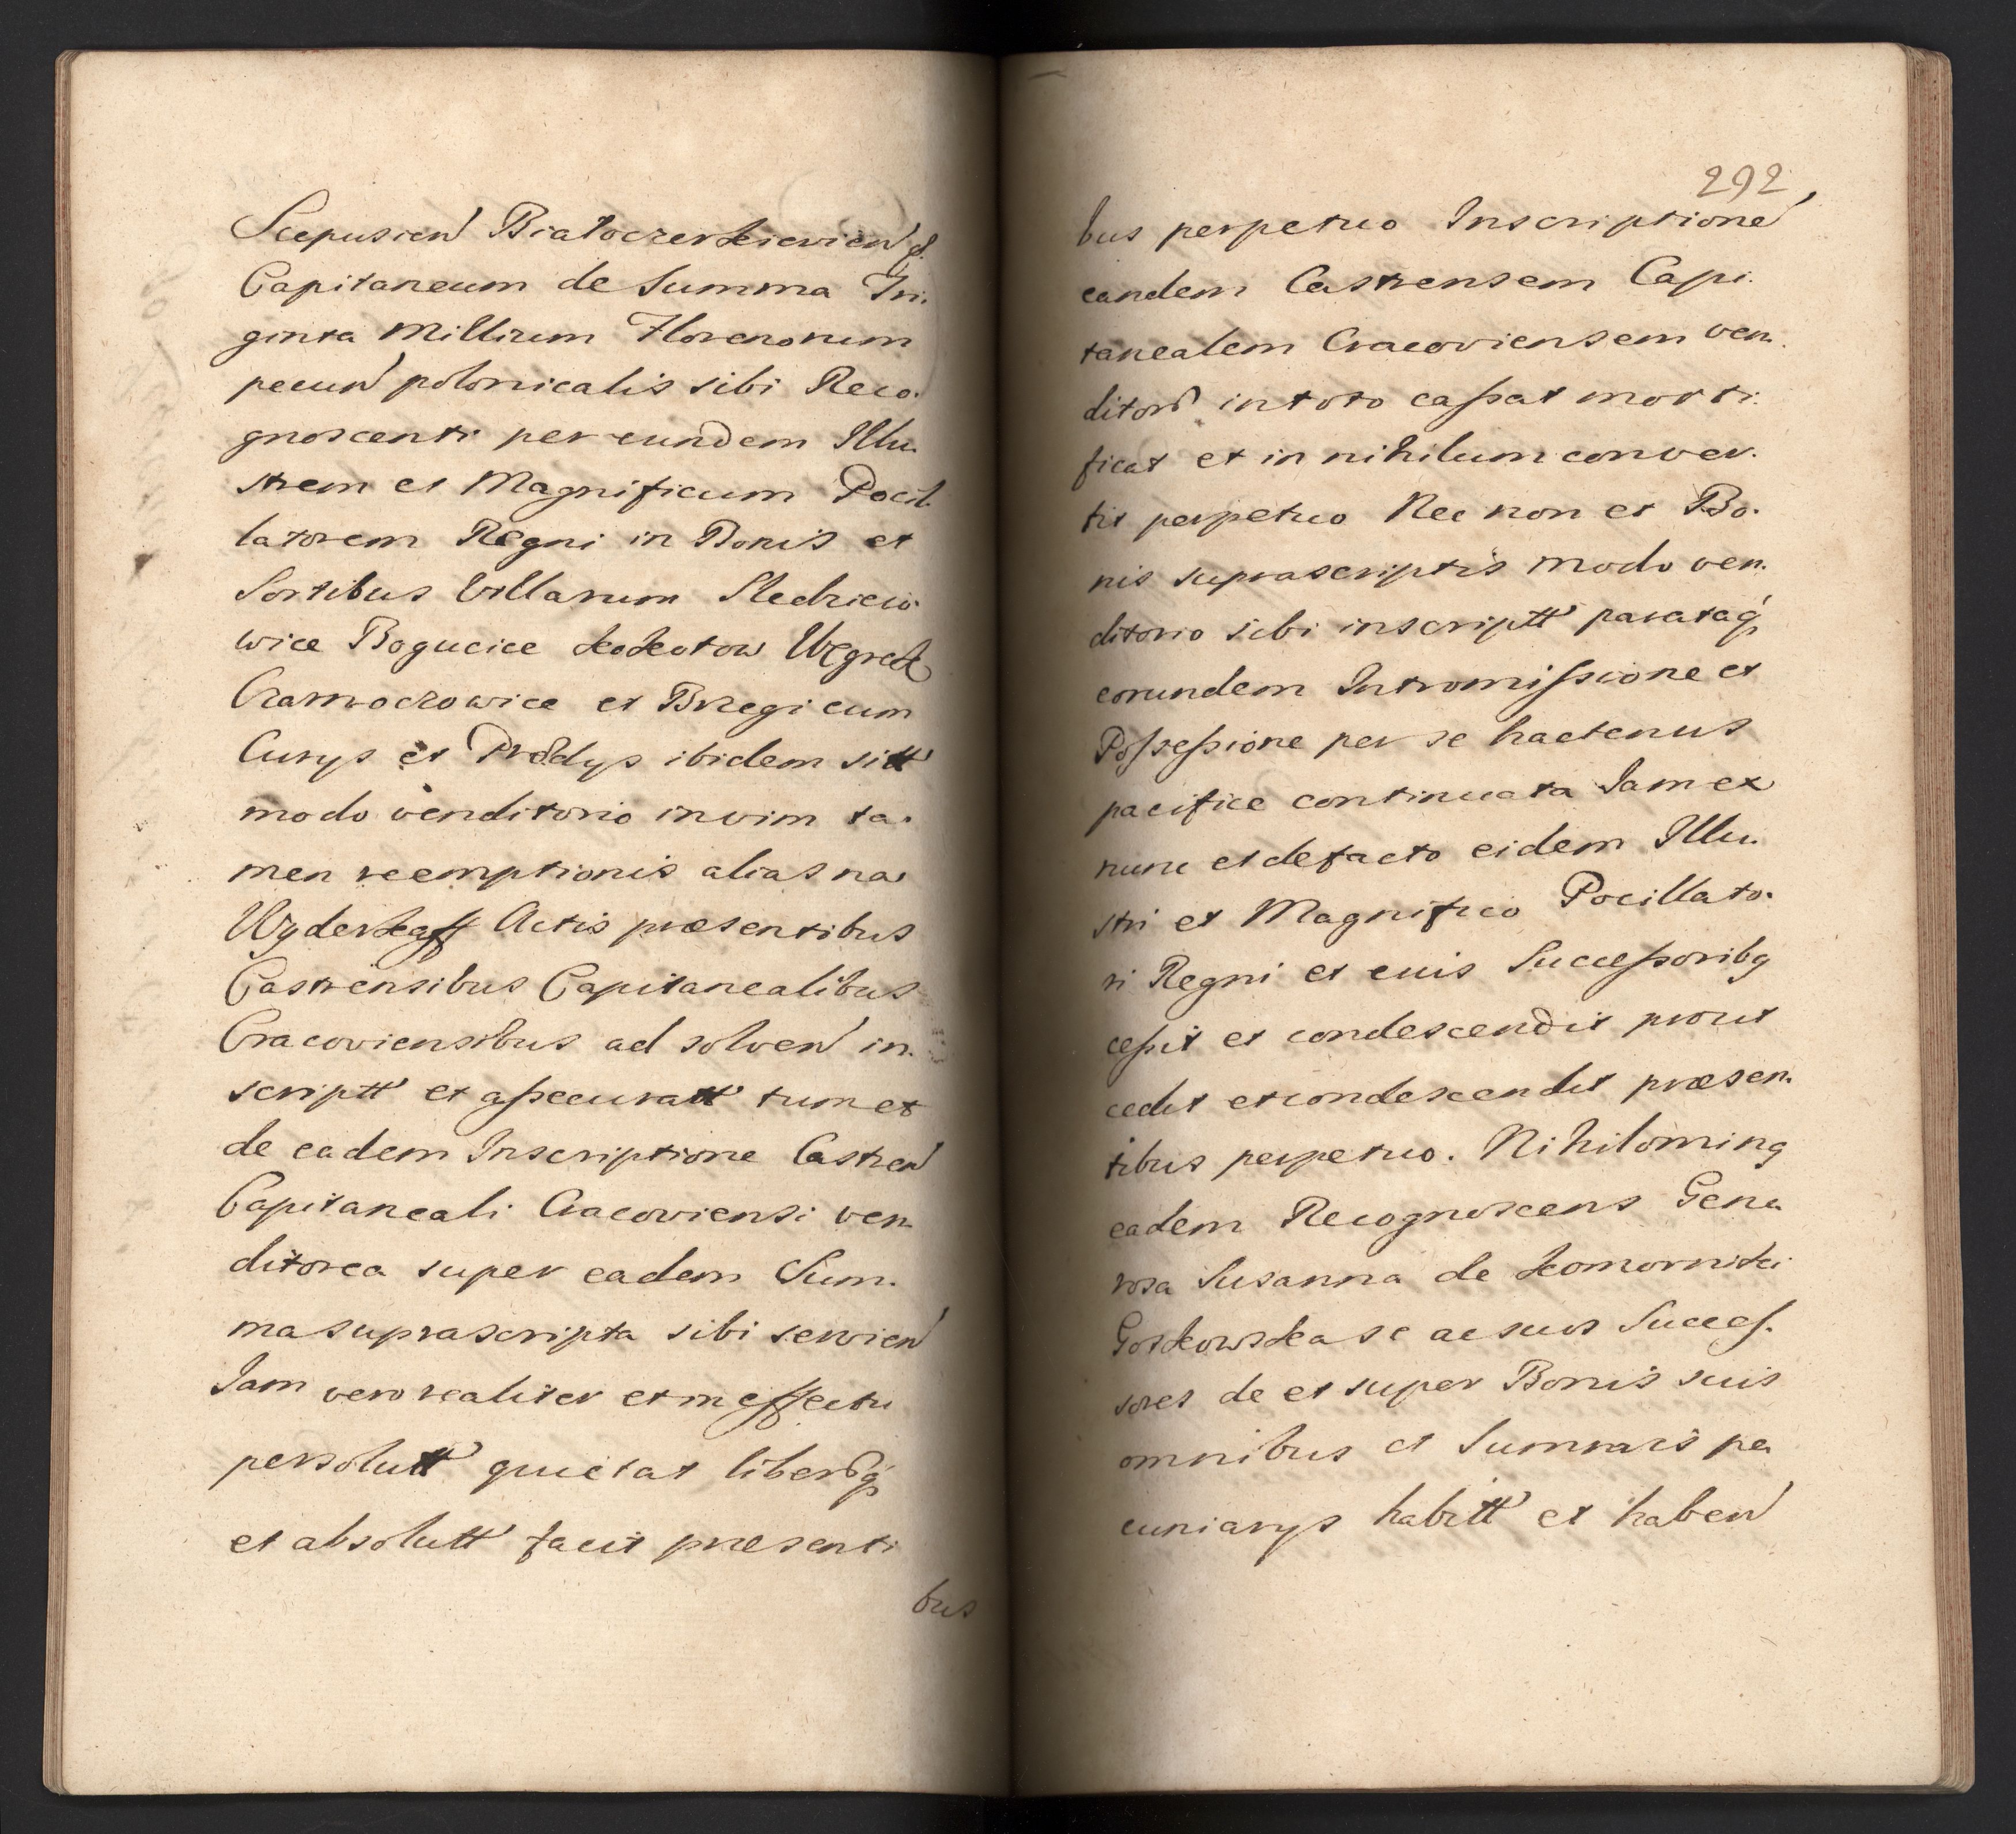 Scepusien Białocerkievien &
Capitaneum de Summa Tri.
ginta Millium Florenorum
pecun polonicalis sibi Reco.
gnoscenti per eundem Illu.
strem et Magnificum Pocil.
latorem Regni in Bonis et
Sortibus Villarum Sledzieio
wice Bogucice Kokotow Węgrzk
Czarnoczowice et Brzegi cum
Curys et Prædys ibidem sitt
modo venditorio in vim ta.
men reemptionis alias na
Wyderkaff Actis præsentibus
Castrensibus Capitanealibus
Cracoviensibus ad solven in.
scriptt et assecuratt tum et
de eadem Inscriptione Castren
Capitaneali Cracoviensi ven
ditorea super eadem Sum.
ma suprascripta sibi servien
Jam vero realiter et in effectu
persolutt quietat liberosq
et absolutt facit præsenti
bus
292
bus perpetuo Inscriptione
eandem Castrensem Capi.
tanealem Cracoviensem ven.
ditor in toto cassat morti.
ficat et in nihilum conver.
tit perpetuo Nec non et Bo.
nis suprascriptis modo ven.
ditorio sibi inscriptt parataq
eorundem Intromissione et
Possessione per se hactenus
pacifice continuata Jam ex
nunc et de facto eidem Illu.
stri et Magnifico Pocillato.
ri Regni et euis Successoribq
cessit et condescendit prout
cedit et condescendit præsen.
tibus perpetuo. Nihilominq
eadem Recognoscens Gene
rosa Susanna de Komornicki
Goskowska se ac suos Succes.
sores de et super Bonis suis
omnibus et Summis pe
cuniarys habitt et haben